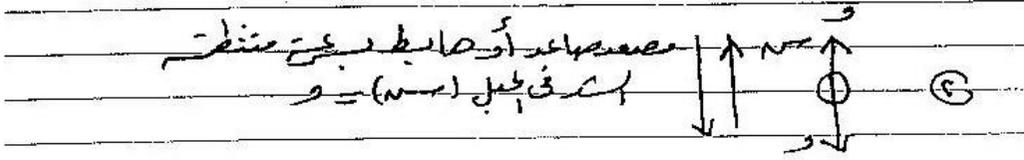 ② مصعد صاعد أو هابط بسرعة منتظمة
الشد في الحبل (سـ) = و
و
سـ
و